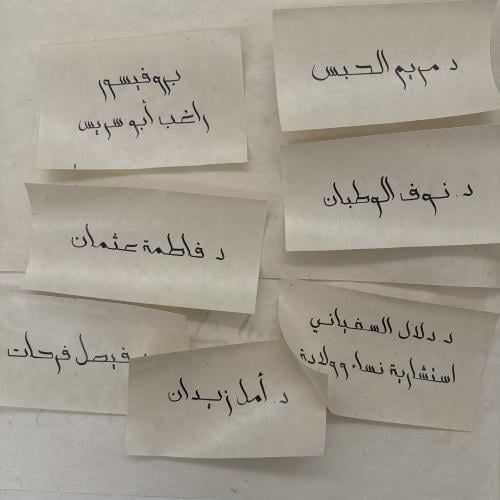 د. مريم الحبس
بروفيسور
راغب أبو سريس
د. نوف الوطبان
د. فاطمة عثمان
د. دلال السفياني
استشارية نساء وولادة
د. فيصل فرحات
د. أمل زيدان